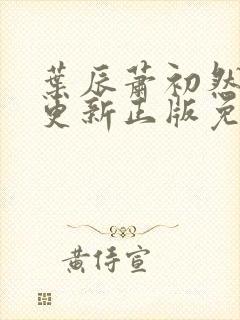 葉辰蕭初然
更新正版免
黄侍宣